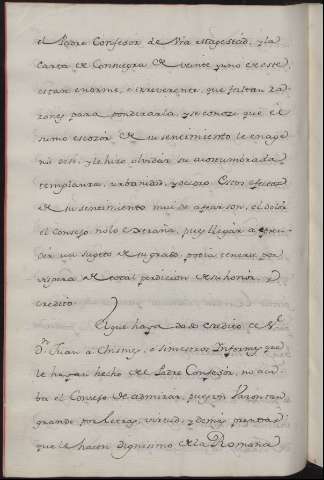 el Padre Confesor de Vra Magestad, y la
Carta de Consuegra de veinte y uno de este
es tan enorme, e irreverente, que faltan ra
zones para ponderarla, y se conoce que el
sumo escozor de su sentimiento le enage
nò de si, y le hizo olvidar su acostumbrada
templanza, urbanidad, y decoro. Estos efectos
de su sentimiento mui de apasion, el dolor
el Consejo no lo extraña, pues llegar a apren
der un sugeto de su grado, podia tenerse por
vispera de total perdicion de su honor, y
credito.
El que haya dado credito de
Dn Juan a Chismes, o siniestros Informes que
le hayan hecho del Padre Confesor, no aca
ba el Consejo de admirar, pues en Varon tan
grande por letras, virtud, y demàs prendas
que le hacen dignisimo de la Romana